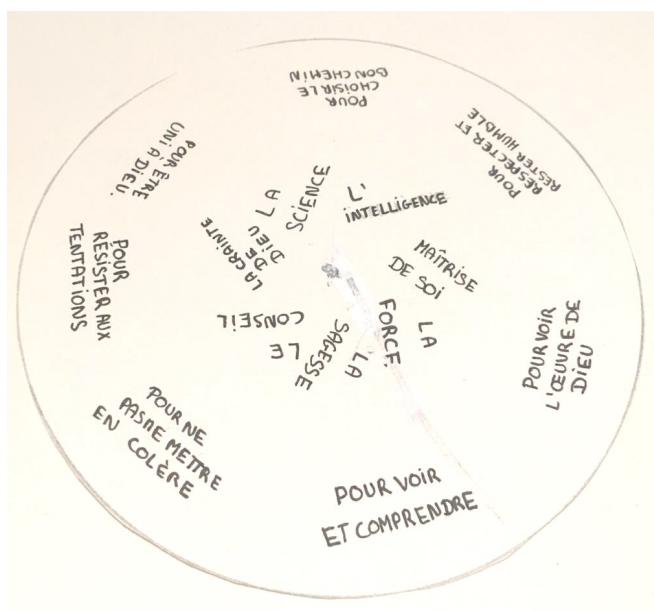 POUR
CHOISIR LE
BON CHEMIN
POUR
RESPECTER ET
RESTER HUMBLE
POUR VOIR
L'ŒUVRE DE
DIEU
POUR VOIR
ET COMPRENDRE
POUR NE
PAS ME METTRE
EN COLÈRE
POUR
RÉSISTER AUX
TENTATIONS
POUR ÊTRE
UNI A DIEU.
LA
SCIENCE
L'
INTELLIGENCE
MAÎTRISE
DE SOI
LA
FORCE.
LA
SAGESSE
LE
CONSEIL
LA CRAINTE
DE
DIEU